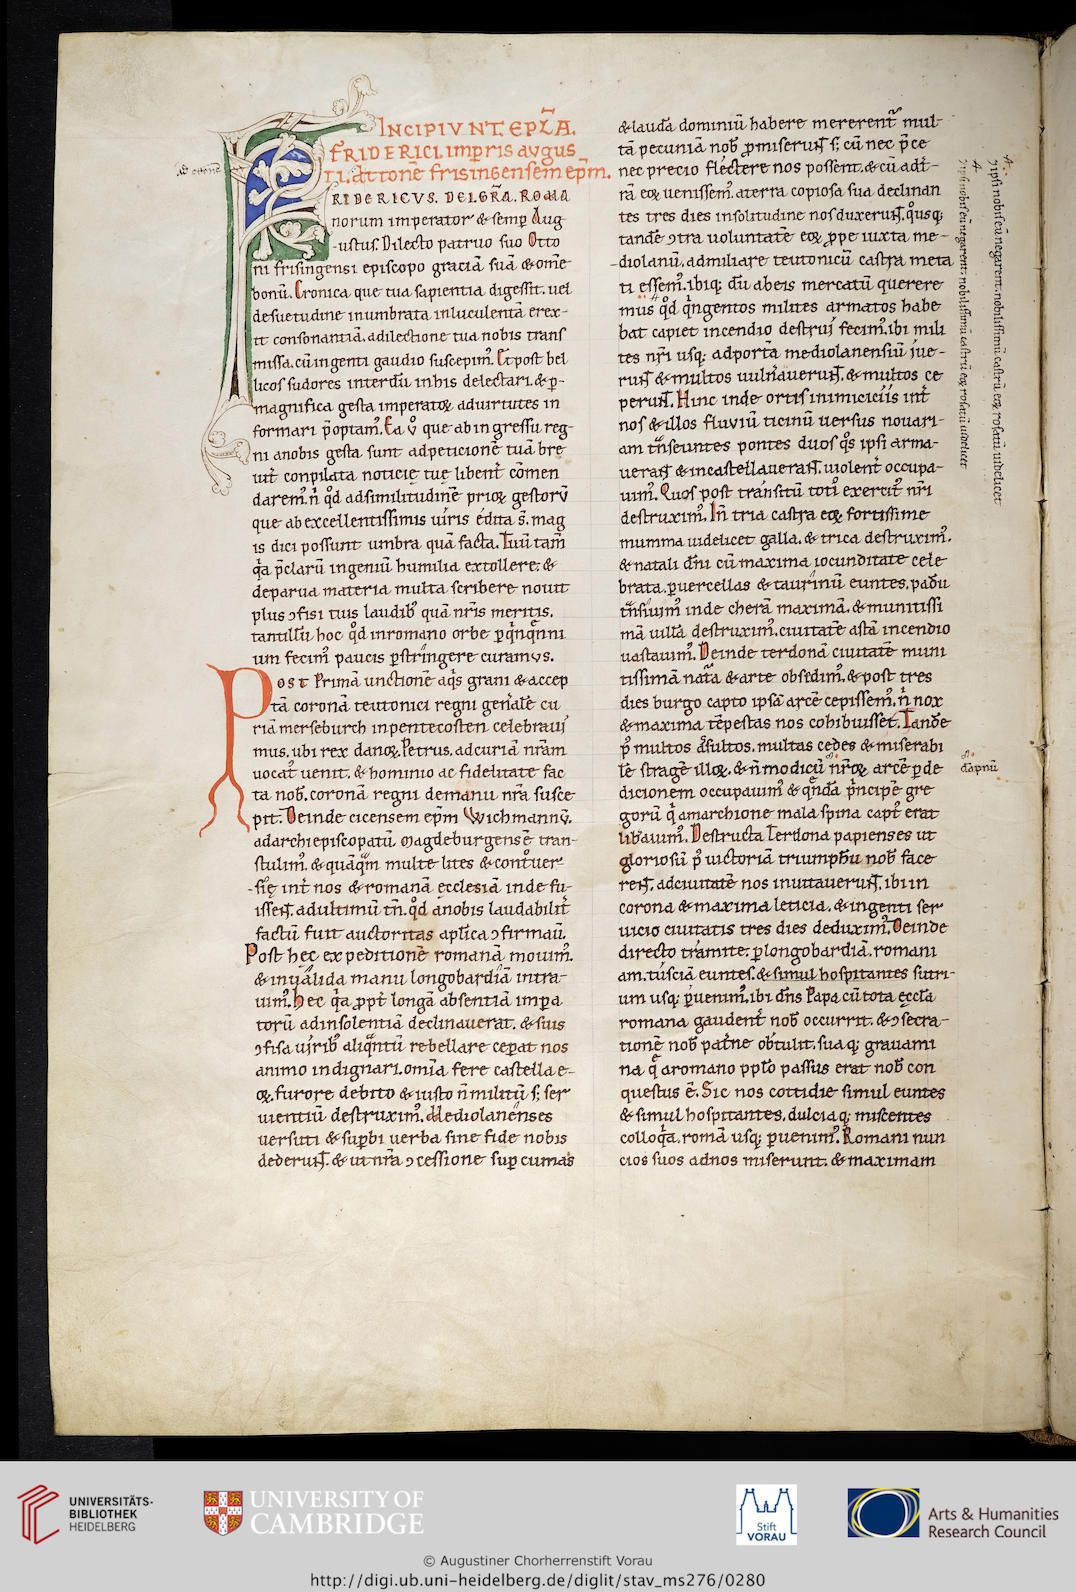 INCIPIVNT EPL̄A.
FRIDERICI. imp̄ris avgus
TI. at tonē frisingensem ep̄m.
ad ottonē
FRIDERICVS. DEI. GR̄A. ROMA
norum imperator & semꝑ Aug
-ustus. Dilecto patruo suo Otto
ni frisingensi episcopo gratiā suā & om̄e
bonū. Cronica que tua sapientia digessit. uel
desuetudine inumbrata in luculentā erex-
it consonantiā. a dilectione tua nobis trans
missa. cū ingenti gaudio suscepim᷒. Et post bel
licos sudores interdū in his delectari. & ꝑ-
magnifica gesta imperatoꝝ ad uirtutes in
formari p̄optam᷒. Ea ů que ab ingressu reg-
ni a nobis gesta sunt ad peticionē tuā bre
uit̄ conpilata noticię tuę libent̄ cōmen
darem᷒. n̄ qd̄ ad similitudinē prioꝝ gestorū
que ab excellentissimis uiris edita s̄. mag
is dici possunt umbra quā facta. Tuū tam̄
q̄a p̄clarū ingeniū humilia extollere. &
de parua materia multa scribere nouit
plus ↄfisi tuis laudib᷒ quā nr̄is meritis.
tantillū hoc qd̄ in romano orbe ꝑ q̄nq̄nni
um fecim᷒ paucis ꝑstringere curamus.
Post primā unctionē aq̄s grani & accep
tā coronā teutonici regni gen̄alē cu
riā merseburch in pentecosten celebraui
mus. ubi rex danoꝝ. Petrus. ad curiā nr̄am
uocat᷒ uenit. & hominio ac fidelitate fac
ta nob̄. coronā regni de manu nr̄a susce
pit. Deinde cicensem ep̄m Wichmannū.
ad archiepiscopatū. Magdeburgensē tran-
stulim᷒. & quāq̄m multe lites & contuer
-się int̄ nos & romanā ęcclesiā inde fu-
issent̄. ad ultimū tn̄. qd̄ a nobis laudabilit̄
factū fuit auctoritas aplica ↄfirmauit.
Post hęc expeditionē romanā mouim᷒.
& in ualida manu longobardiā intra
uim᷒. Hec q̄a ꝓpt̄ longā absentiā impa
torū ad insolentiā declinauerat. & suis
ↄfisa uirib᷒ aliq̄ntū rebellare ceꝑat nos
animo indignari. omīa fere castella e-
oꝝ. furore debito & iusto n̄ militū s; ser
uientiū destruxim᷒. Mediolanenses
uersuti & suꝑbi uerba sine fide nobis
dederunt̄. & ut nr̄a ↄcessione suꝑ cumas
& lauda dominiū habere mererent̄ mul
tā pecuniā nob̄ ꝓmiserunt s; cū nec p̄ce
nec precio flectere nos possent. & cū ad t̄-
rā eoꝝ uenissem᷒. a terra copiosa sua declinan
tes tres dies in solitudine nos duxerunt. q᷒usq;
tandē ↄtra uoluntatē eoꝝ ꝓpe iuxta me-
-diolanū. ad miliare teutonicū castra meta
ti essem᷒. ibiq; dū ab eis mercatū querere
mus qd̄ q̄ngentos milites armatos habe
bat capi et incendio destrui fecim᷒. ibi mili
tes nr̄i usq; ad portā mediolanensiū iue-
runt & multos uulnauerunt. & multos ce
perunt. Hinc inde ortis inimiciciis int̄
nos & illos fluuiū ticinū uersus nouari-
am tn̄seuntes pontes duos q᷒s ipsi arma-
uerant & incastellauerant. uiolent̄ occupa-
uim᷒. Quos post transitū toti᷒ exercit᷒ nr̄i
destruxim᷒. In tria castra eoꝝ fortissime
mumma uidelicet galla. & trica destruxim᷒.
& natali dn̄i cū maxima iocunditate cele
brata. ꝑ uercellas & taurinū euntes. padū
tn̄siuim᷒ inde cherā maximā. & munitissi
mā uillā destruxim᷒. ciuitatē astā incendio
uastauim᷒. Deinde terdonā ciuitatē muni
tissimā nat̄a & arte obsedim᷒. & post tres
dies burgo capto ipsā arcē cepissem᷒. n̄ nox
& maxima tēpestas nos cohibuisset. Tandē
p᷒ multos assultos. multas cedes & miserabi
lē stragē illoꝝ. & n̄ modicū nr̄oꝝ arcē ꝑ de
dicionem occupauim᷒ & q̄ndā p̄ncipē gre
gorū q̄ a marchione mala spina capt᷒ erat
lib̄auim᷒. Destructa Terdona papienses ut
gloriosū p᷒ uictoriā triumphū nob̄ face
rent. ad ciuitatē nos inuitauerunt. ibi in
corona & maxima leticia. & ingenti ser
uicio ciuitatis tres dies deduxim᷒. Deinde
directo tramite. ꝑ longobardiā. romani
am. tusciā euntes. & simul hospitantes sutri-
um usq; ꝑuenim᷒. ibi dn̄s Papa cū tota ęccl̄a
romana gaudent̄ nob̄ occurrit. & ↄsecra-
tionē nob̄ pat̄ne obtulit. sua q; grauami
na q̄ a romano pplo passus erat nob̄ con
questus ē. Sic nos cottidie simul euntes
& simul hospitantes. dulcia q; miscentes
colloq̄a. romā usq; ꝑuenim᷒. Romani nun
cios suos ad nos miserunt. & maximam
ipsi nobis eū negarent. nobilissimū castrū eoꝝ rosatū uidelicet
ipsi nobis eū negarent. nobilissimū castrū eoꝝ rosatū uidelicet
dāpnū
UNIVERSITÄTS-
BIBLIOTHEK
HEIDELBERG
UNIVERSITY OF
CAMBRIDGE
Stift
VORAU
Arts & Humanities
Research Council
© Augustiner Chorherrenstift Vorau
http://digi.ub.uni-heidelberg.de/diglit/stav_ms276/0280